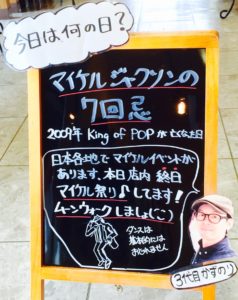 今日は何の日?
マイケルジャクソンの
7回忌
2009年 King of POP が亡くなった日
日本各地でマイケルイベントが
あります。本日店内終日
マイケル祭り♪してます!
ムーンウォークしましょ(^^)
ダンスは
基本的には
おどれません
3代目かずのり